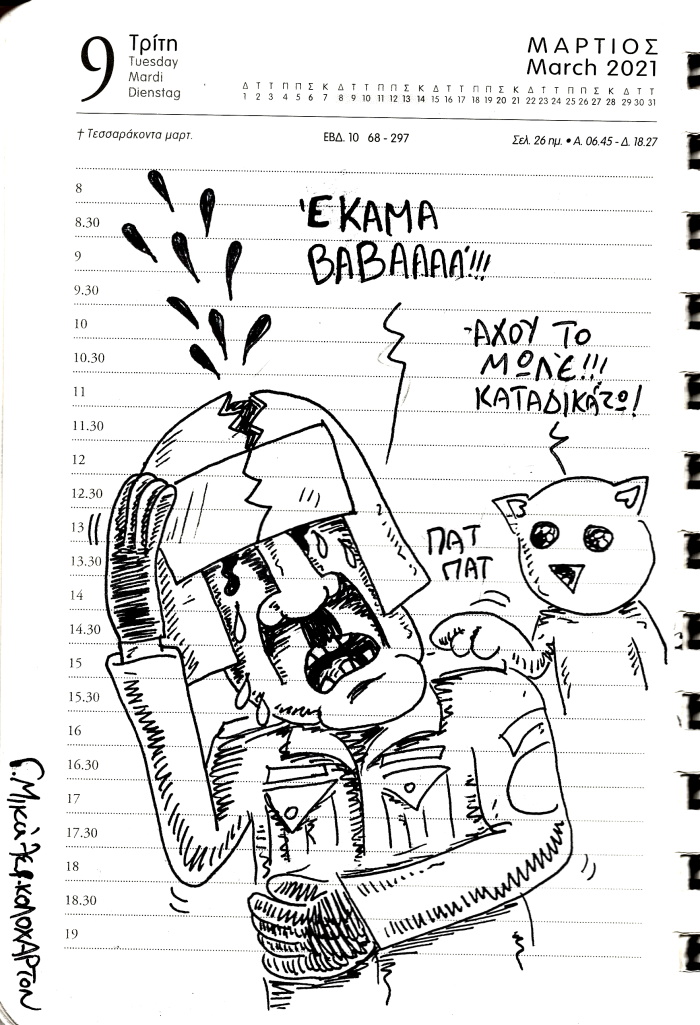 9
Τρίτη
Tuesday
Mardi
Dienstag
ΜΑΡΤΙΟΣ
March 2021
Δ Τ Τ Π Π Σ Κ Δ Τ Τ Π Π Σ Κ Δ Τ Τ Π Π Σ Κ Δ Τ Τ Π Π Σ Κ Δ Τ Τ
1 2 3 4 5 6 7 8 9 10 11 12 13 14 15 16 17 18 19 20 21 22 23 24 25 26 27 28 29 30 31
† Τεσσαράκοντα μαρτ.
ΕΒΔ. 10 68 - 297
Σελ. 26 ημ. • Α. 06.45 - Δ. 18.27
8
8.30
9
9.30
10
10.30
11
11.30
12
12.30
13
13.30
14
14.30
15
15.30
16
16.30
17
17.30
18
18.30
19
ΈΚΑΜΑ
ΒΑΒΑΑΑΆ!!!
-ΑΧΟΥ ΤΟ
ΜΩΛΈ!!!
ΚΑΤΑΔΙΚΆΖΩ!
ΠΑΤ
ΠΑΤ